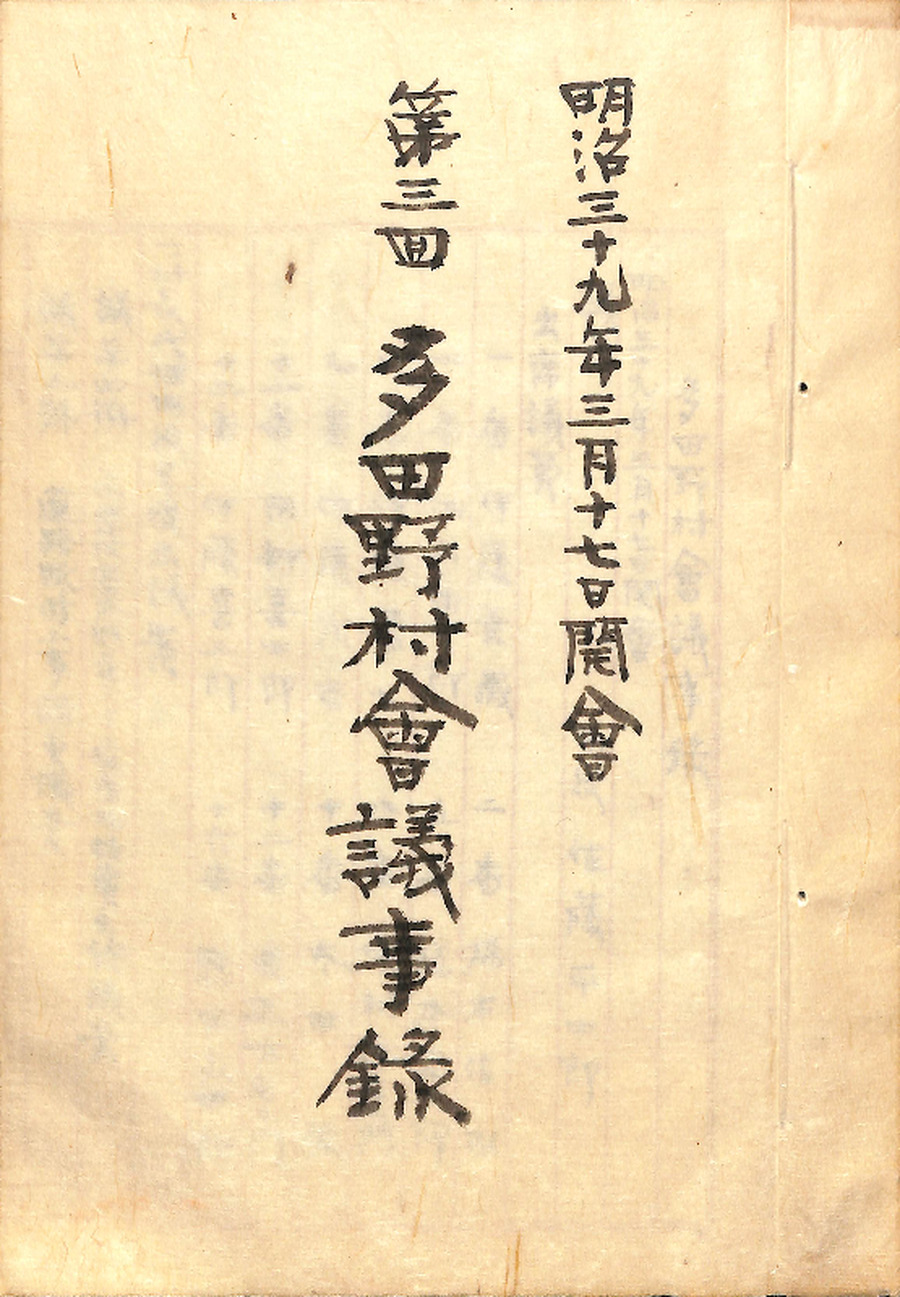 明治三十九年三月十七日開會
第三回 多田野村會議事錄